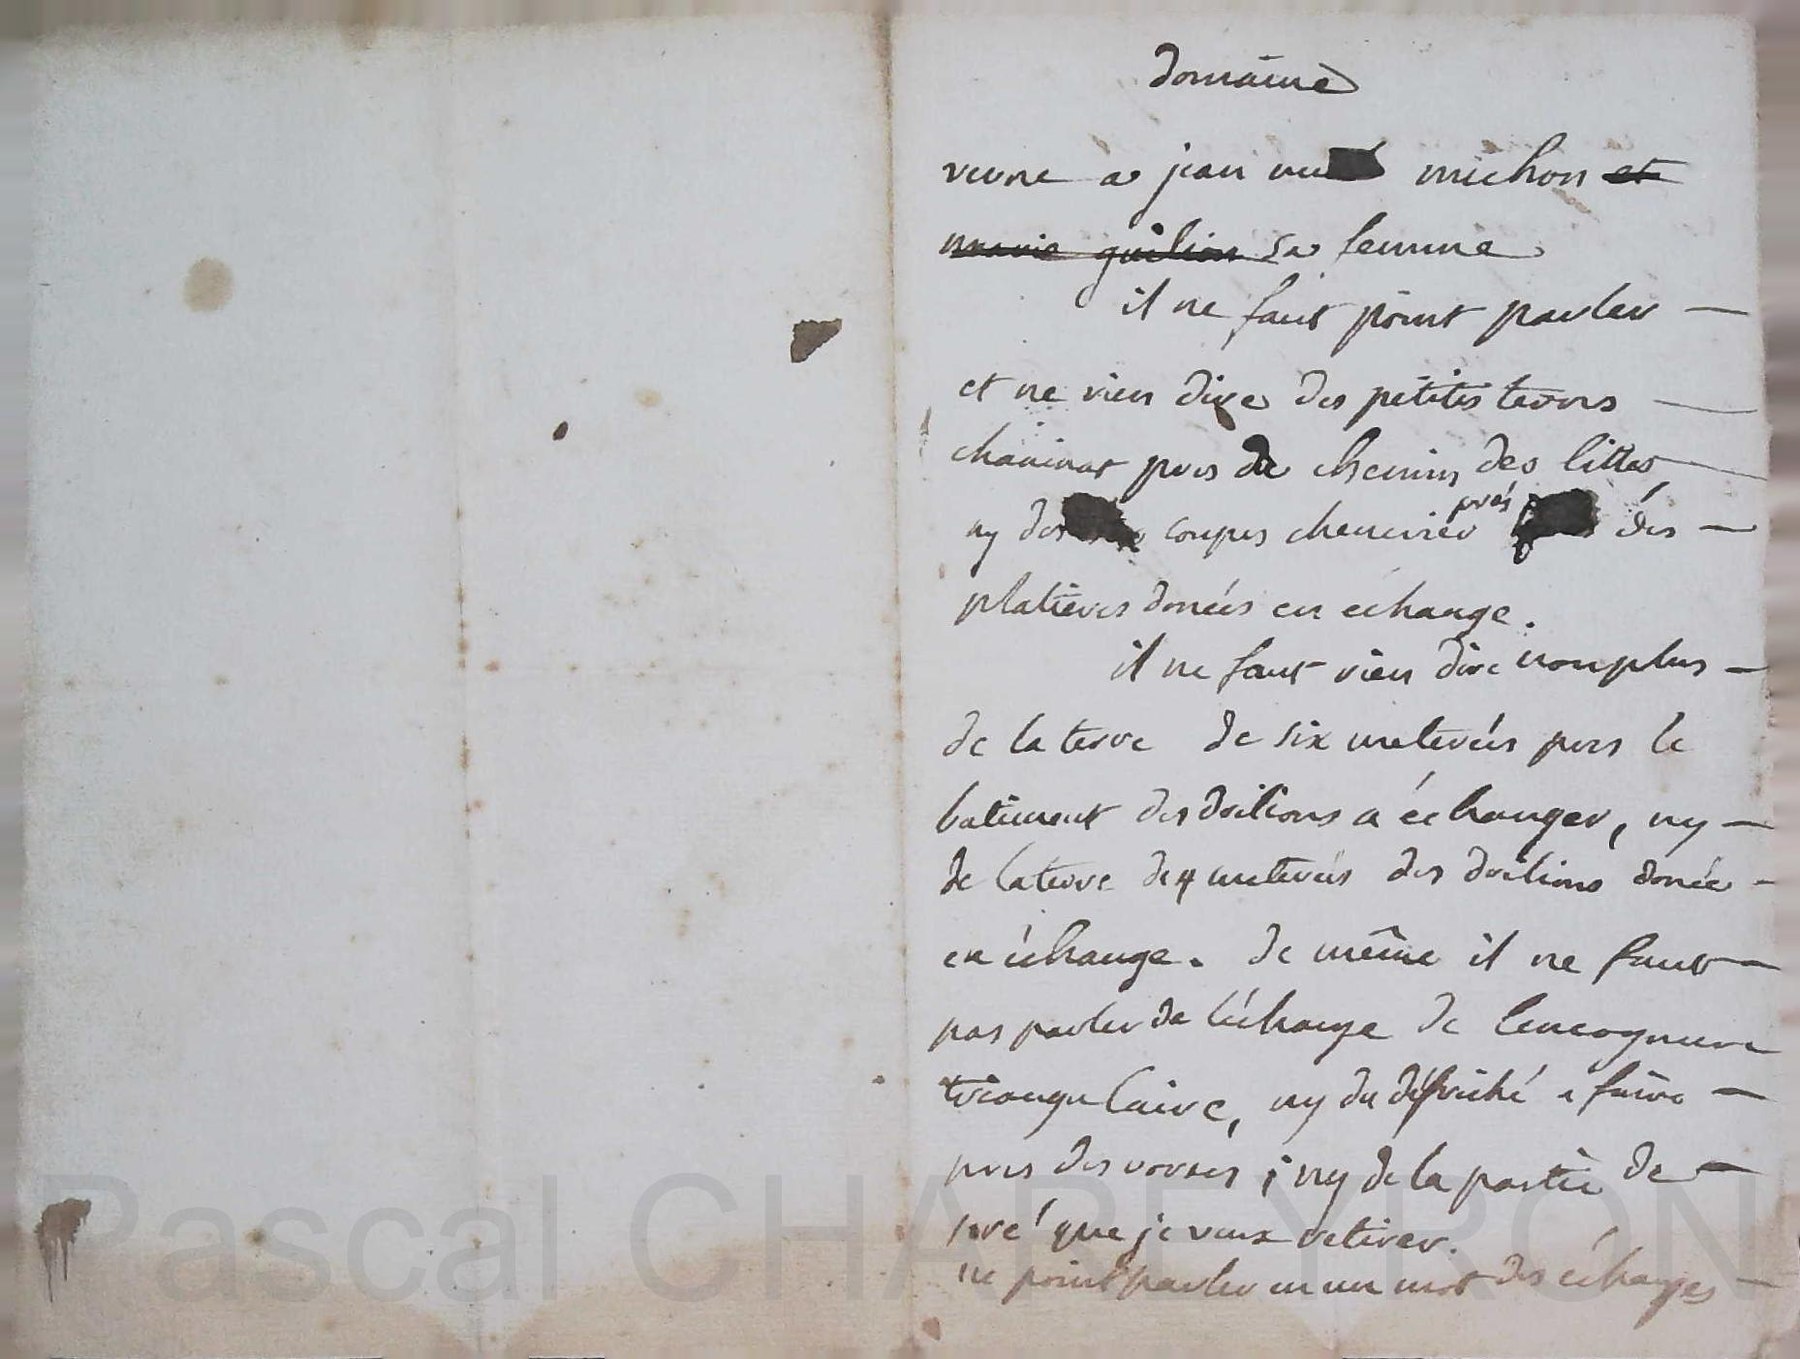 domaine
a jean michon et
marie guilion sa femme
il ne faut point parler —
et ne rien dire des petites terres —
pres de chemin des littes —
ny des coupes chenevier prés des —
platieres donées en echange.
il ne faut rien dire non plus —
de la terre de six meterées pres le
batiment des doilions a échanger, ny —
de la terre de 4 meterées des doilions donée —
en échange. de même il ne faut —
pas parler de l'échange de lencognure
triangulaire, ny du défriché a faire —
pres des vorses ; ny de la partie de —
pré que je veux retirer.
ne point parler en un mot des échanges —
Pascal CHAREYRON